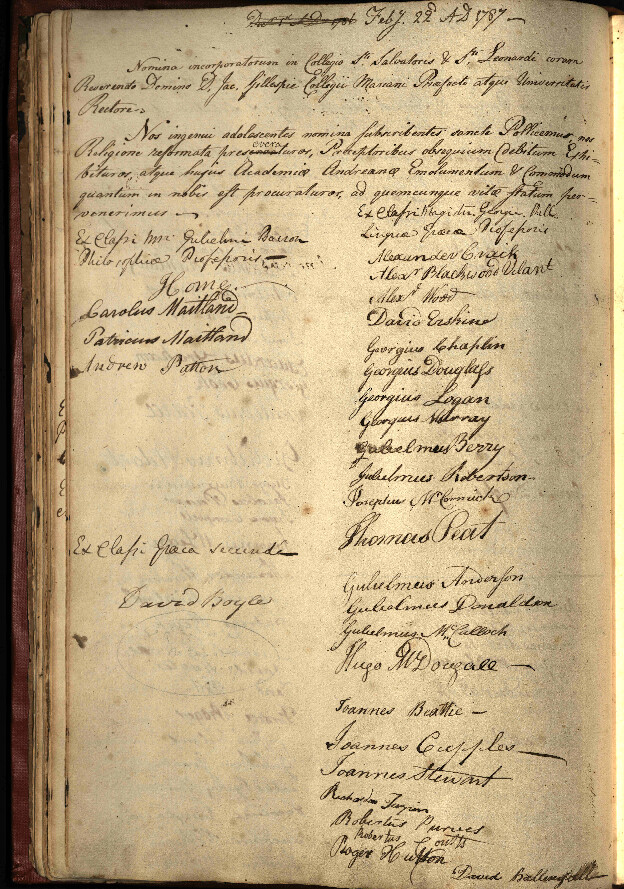 Feby. 22d AD 1787
Nomina incorporatorum in Collegio Sti Salvatoris & Sti Leonardi coram
Reverendo Domino D. Jac. Gillespie Collegii Mariani Præfecto atque Universitatis
Rectore
Nos ingenui adolescentes nomina subscribentes sancte Pollicemur, nos
Religione reformata perseveraturos, Præceptoribus obsequium debitum Exhi-
bituros, atque hujus Academiæ Andreanæ Emolumentum & Commodum
quantum in nobis est procuraturos, ad quemcunque vitæ statum per-
venerimus
Ex Classi Mri Gulielmi Barron
Philosophiæ Professoris
Home.
Carolus Maitland
Patricius Maitland
Andrew Patton
Ex Classi Græca secunda
David Boyle
Ex Classi Magistri Georgii Hill
Linguæ Græcæ Professoris
Alexander Craik
Alexr Blackwood Vilant
Alexr Wood
David Erskine
Georgius Chaplin
Georgius Douglass
Georgius Logan
Georgius Murray
Gulielmus Berry
Gulielmus Robertson
Josephus McCormick
Thomas Peat
Gulielmus Anderson
Gulielmus Donaldson
Gulielmus McCulloch
Hugo McDougall
Joannes Beattie
Joannes Cupples
Joannes Stewart
Robertus Purves
Robertus Coutts
Roger Hutton
David